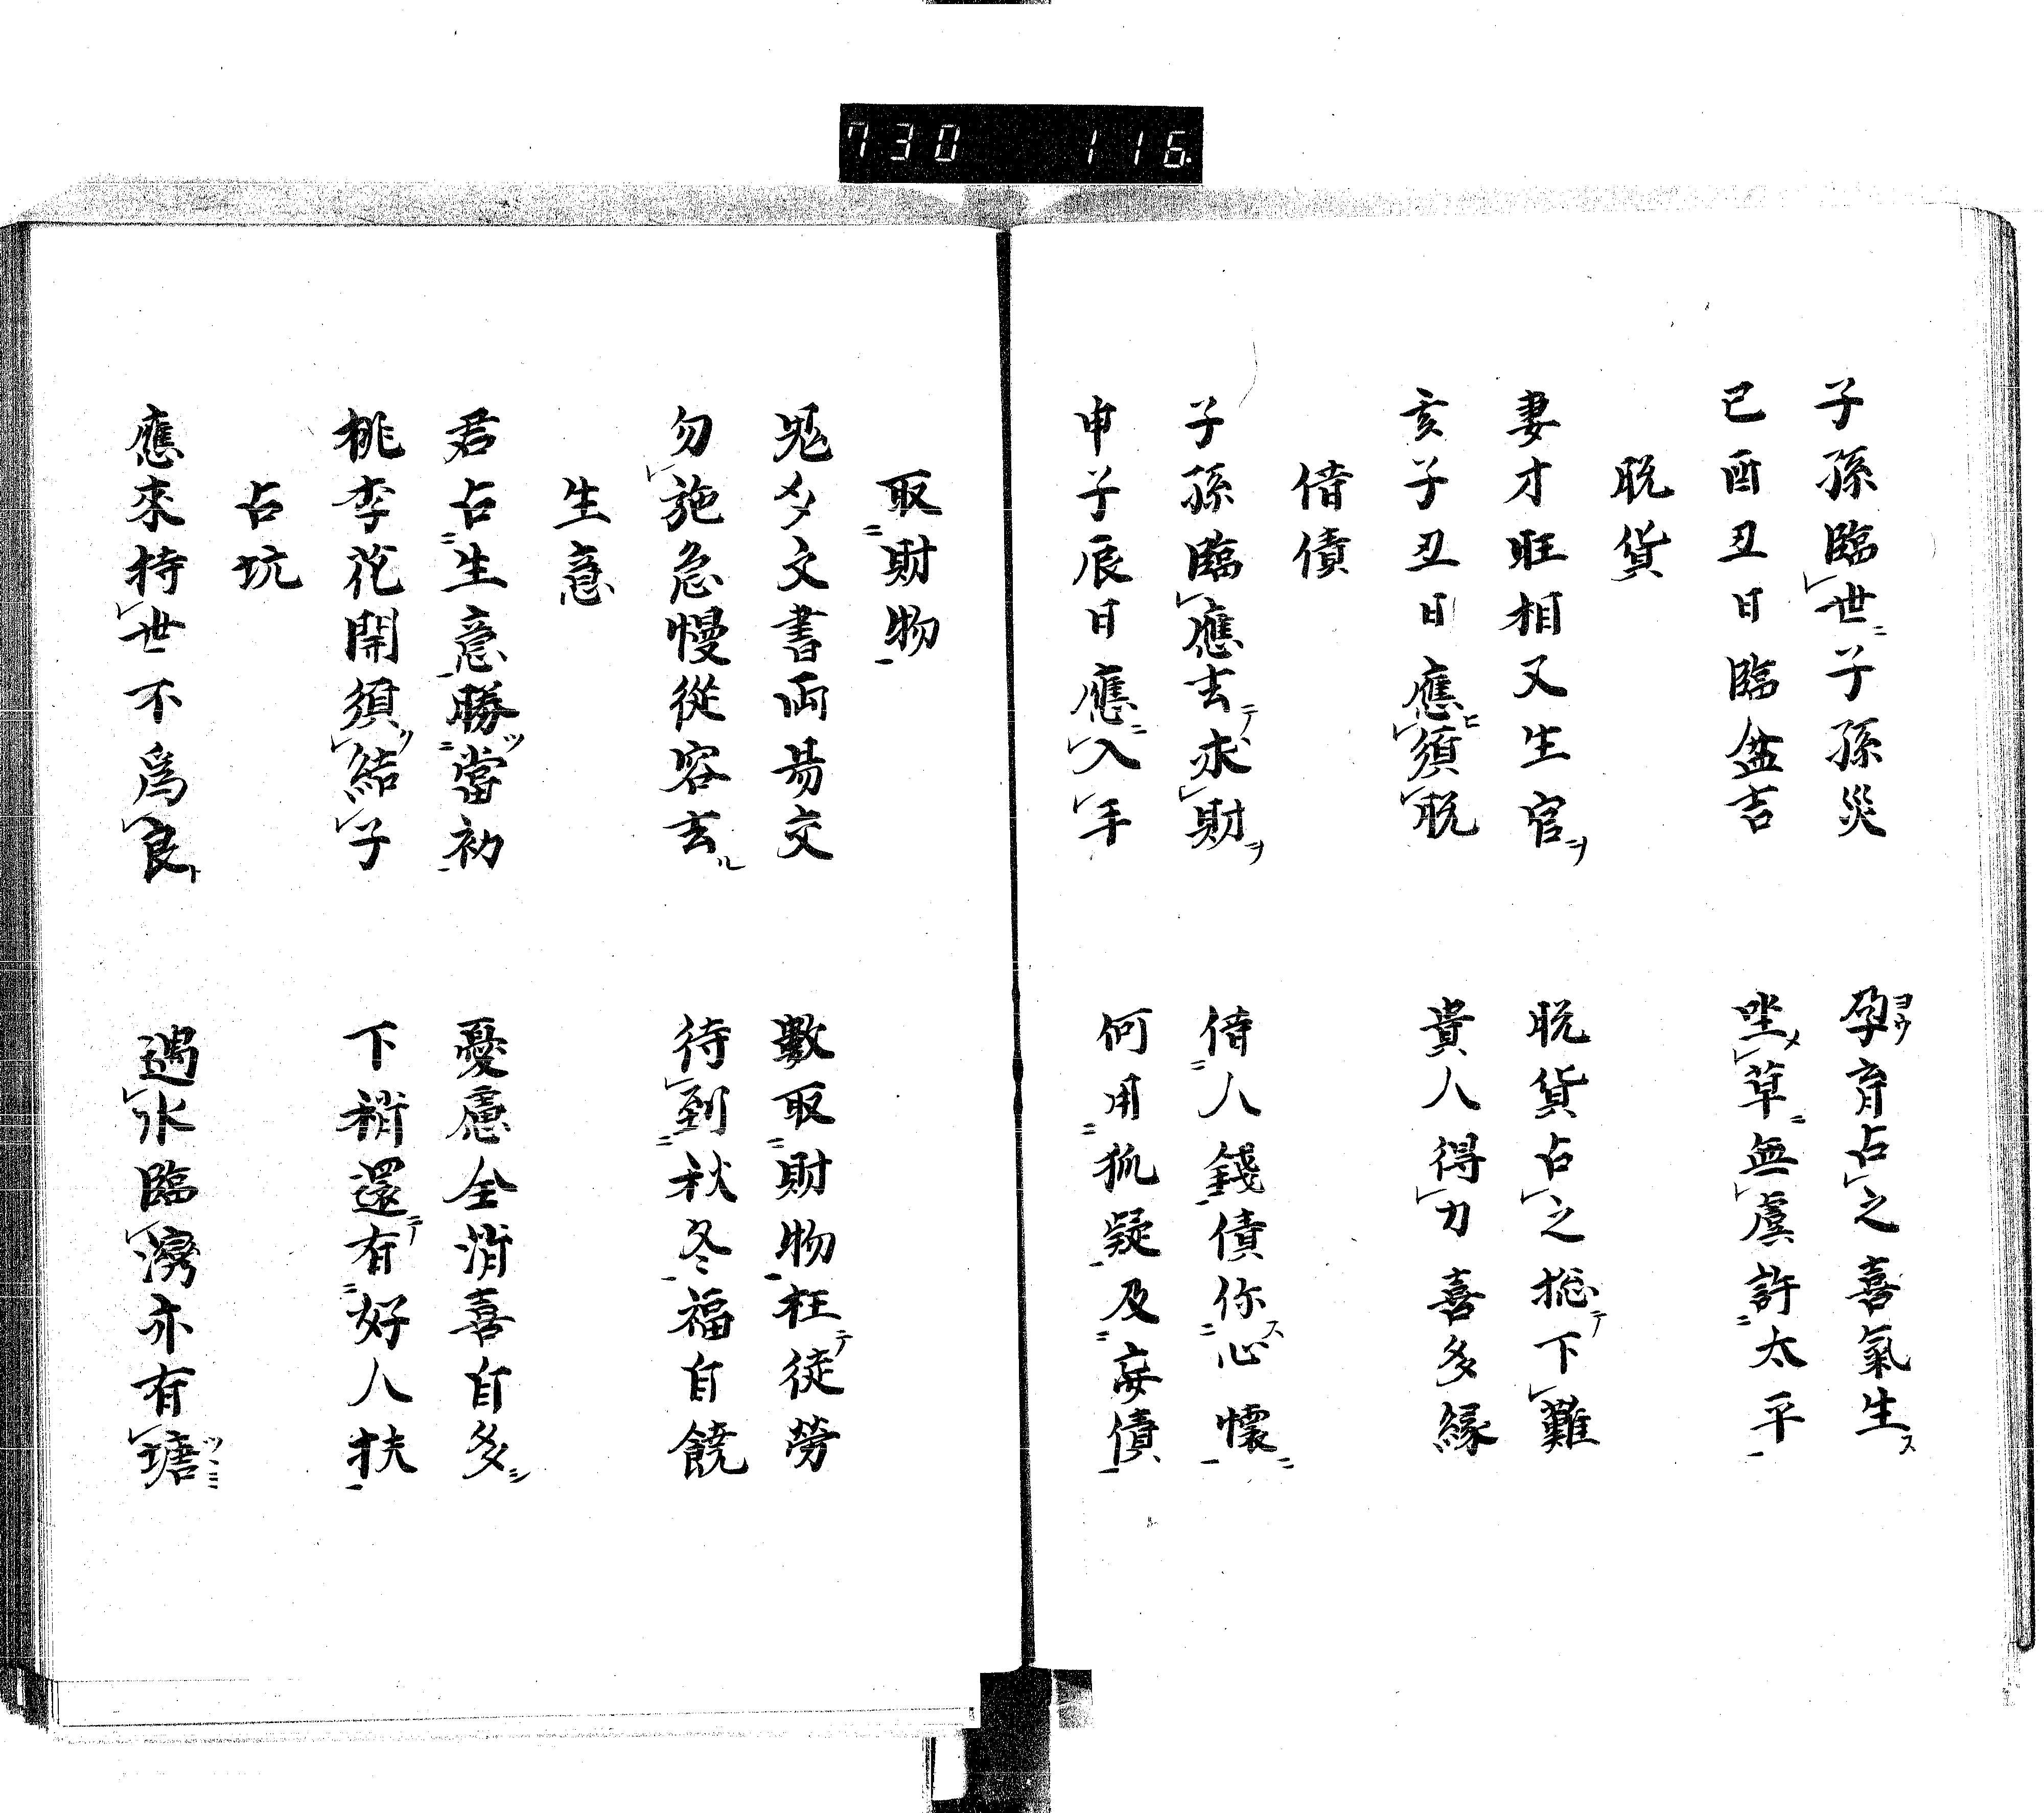 730 116
子孫臨世子孫災 孕育占之喜氣生
已酉丑日臨盆吉 坐草無虞許太平
脱貨
妻才旺相又生官 脱貨占之揔下難
亥子丑日應須脱 貴人得力喜多緑
借債
子孫臨應去求財 借人錢債你心懷
申子辰日應入手 何用狐疑及妄債
取財物
鬼多文書兩易交 數取財物枉徒勞
勿施急慢從容去 待到秋冬福自饒
生意
君占生意勝當初 憂慮全消喜自多
桃李花開須結子 下稍還有好人扶
占坑
應來持世不爲良 遇水臨灣亦有塘